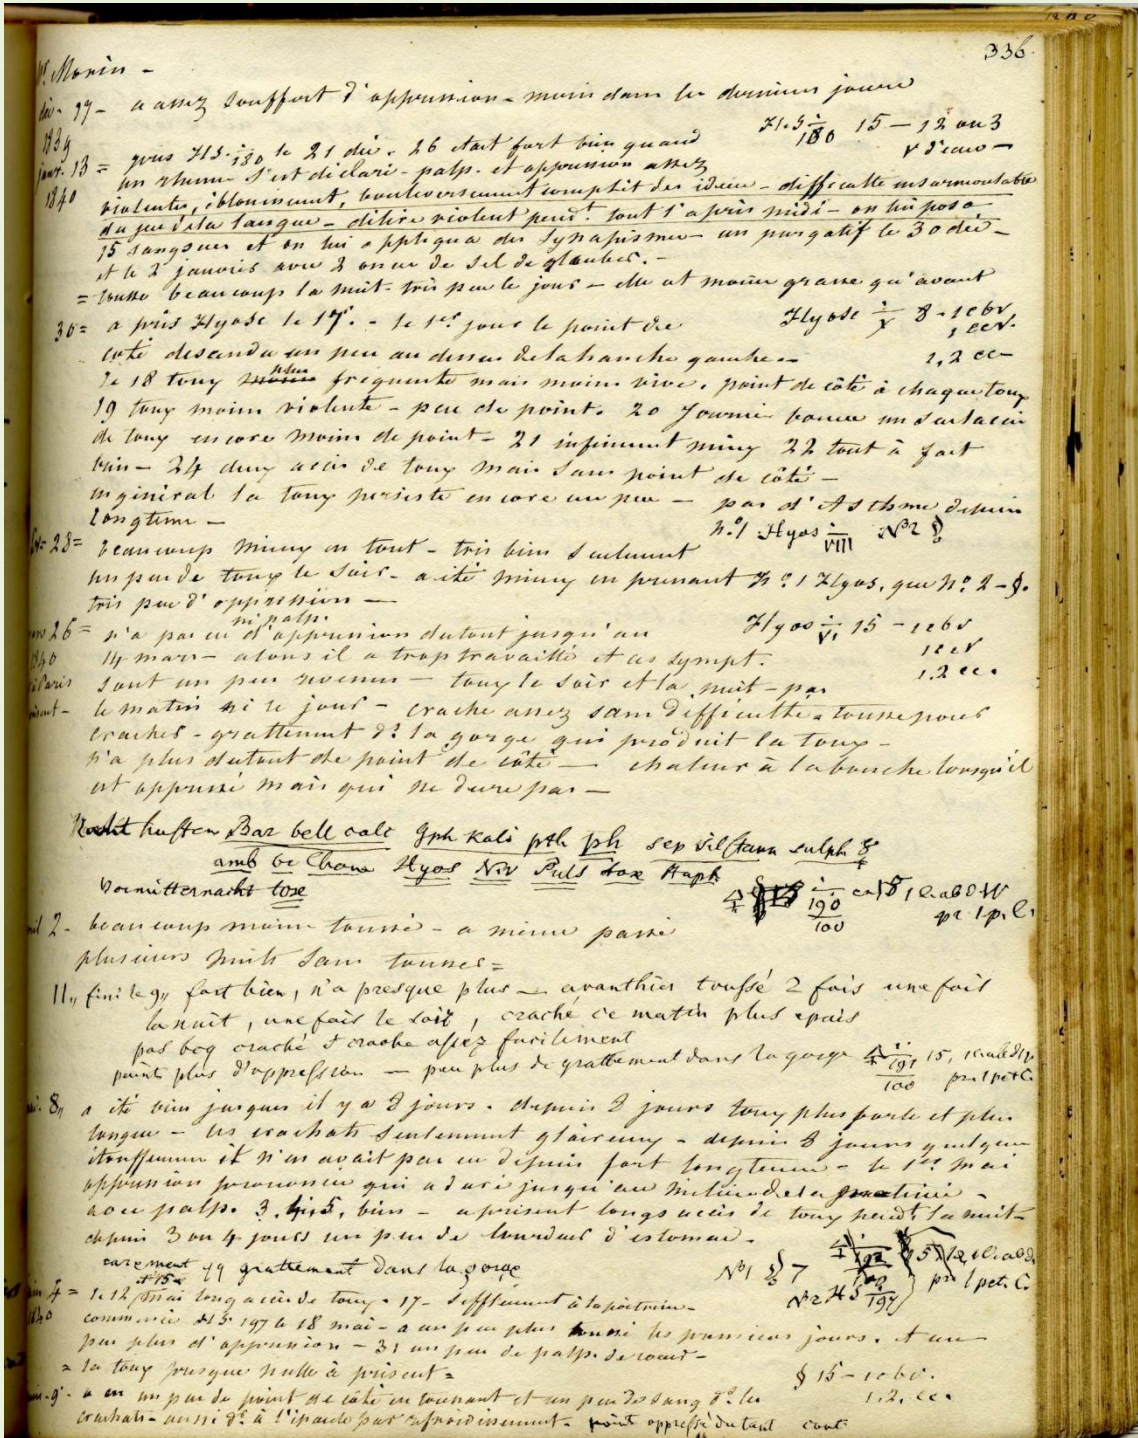 336.
Mr. Morin -
déc. 17 - a assez souffert d'oppression - moins dans les derniers jours
1839
H.S. 180 15 - 12 ou 3
v d'eau -
janv. 13 = pris HS. 180 le 21 déc. 26 était fort bien quand
1840 un rhume s'est déclaré - palp. et oppression assez
violentes, éblouissement, bouleversement complet des idées - difficulté insurmontable
du jeu de la langue - délire violent pendt. tout l'après midi - on lui posa
15 sangsues et on lui appliqua des synapismes - un purgatif le 30 déc -
et le 2 janvier avec 2 onces de sel de glauber. -
= tousse beaucoup la nuit - très peu le jour - elle est moins grasse qu'avant
Hyosc 8 - 1 c b v
30 = a pris Hyosc le 17. - le 1er jour le point de
1, 2 cc -
côté descendu un peu au dessus de la hanche gauche -
le 18 toux plus frequente mais moins vive. point de côté à chaque toux
19 toux moins violente - peu de point. 20 journée bonne un seul accès
de toux encore moins de point - 21 infiniment mieux 22 tout à fait
bien - 24 deux accès de toux mais sans point de côté -
en général la toux persiste encore un peu - pas d'Asthme depuis
longtems -
no. 1 Hyos VIII No 2
28 = beaucoup mieux en tout - très bien seulement
un peu de toux le soir - a été mieux en prenant No. 1 Hyos. que No. 2 -
très peu d'oppression -
26 = n'a pas eu d'oppression ni palp. du tout jusqu'au
Hyos 15 - 1 c b v
1840 14 mars - alors il a trop travaillé et ces sympt.
1.2 cc.
à Paris sont un peu revenus - toux le soir et la nuit - pas
le matin ni le jour - crache assez sans difficulté - tousse pour
cracher - grattement ds. la gorge qui produit la toux -
n'a plus du tout de point de côté - chaleur à la bouche lorsqu'il
est oppressé mais qui ne dure pas -
Nacht husten Bar bell calc gph kali pth ph sep sil stann sulph
amb Cham Hyos Nv Puls tox Staph
Vormitternacht tox
190 15
100
2 - beaucoup moins toussé - a même passé
plusieurs nuits sans tousser =
11,, fini le 9,, fort bien, n'a presque plus - avanthier toussé 2 fois une fois
la nuit, une fois le soir, craché ce matin plus épais
pas bcq craché & crache assez facilement
point plus d'oppression - peu plus de grattement dans la gorge 191 15,
100
8,, a été bien jusques il y a 8 jours. depuis 8 jours toux plus forte et plus
longue - les crachats seulement glaireux - depuis 8 jours quelques
étouffemens il n'en avait pas eu depuis fort longtems - le 1er mai
oppression prononcée qui a duré jusqu'au milieu de la matinée -
avec palp. 3, 4, 5, bien - à présent longs accès de toux pendt. la nuit -
depuis 3 ou 4 jours un peu de lourdeur d'estomac.
rarement grattement dans la gorge
No 1 7
No 2 HS 197
4 = le 12 mai long accès de toux - 17 - sifflement à la poitrine -
1840 commencé HS 197 le 18 mai - a un peu plus toussé les premiers jours. et un
peu plus d'oppression - 31 un peu de palp. de coeur -
= la toux presque nulle à présent =
15 - 1 c b v.
1, 2, cc.
9 - a eu un peu de point de côté en toussant et un peu de sang ds. les
crachats - aussi dr. à l'épaule par refroidissement - point oppressé du tout cont